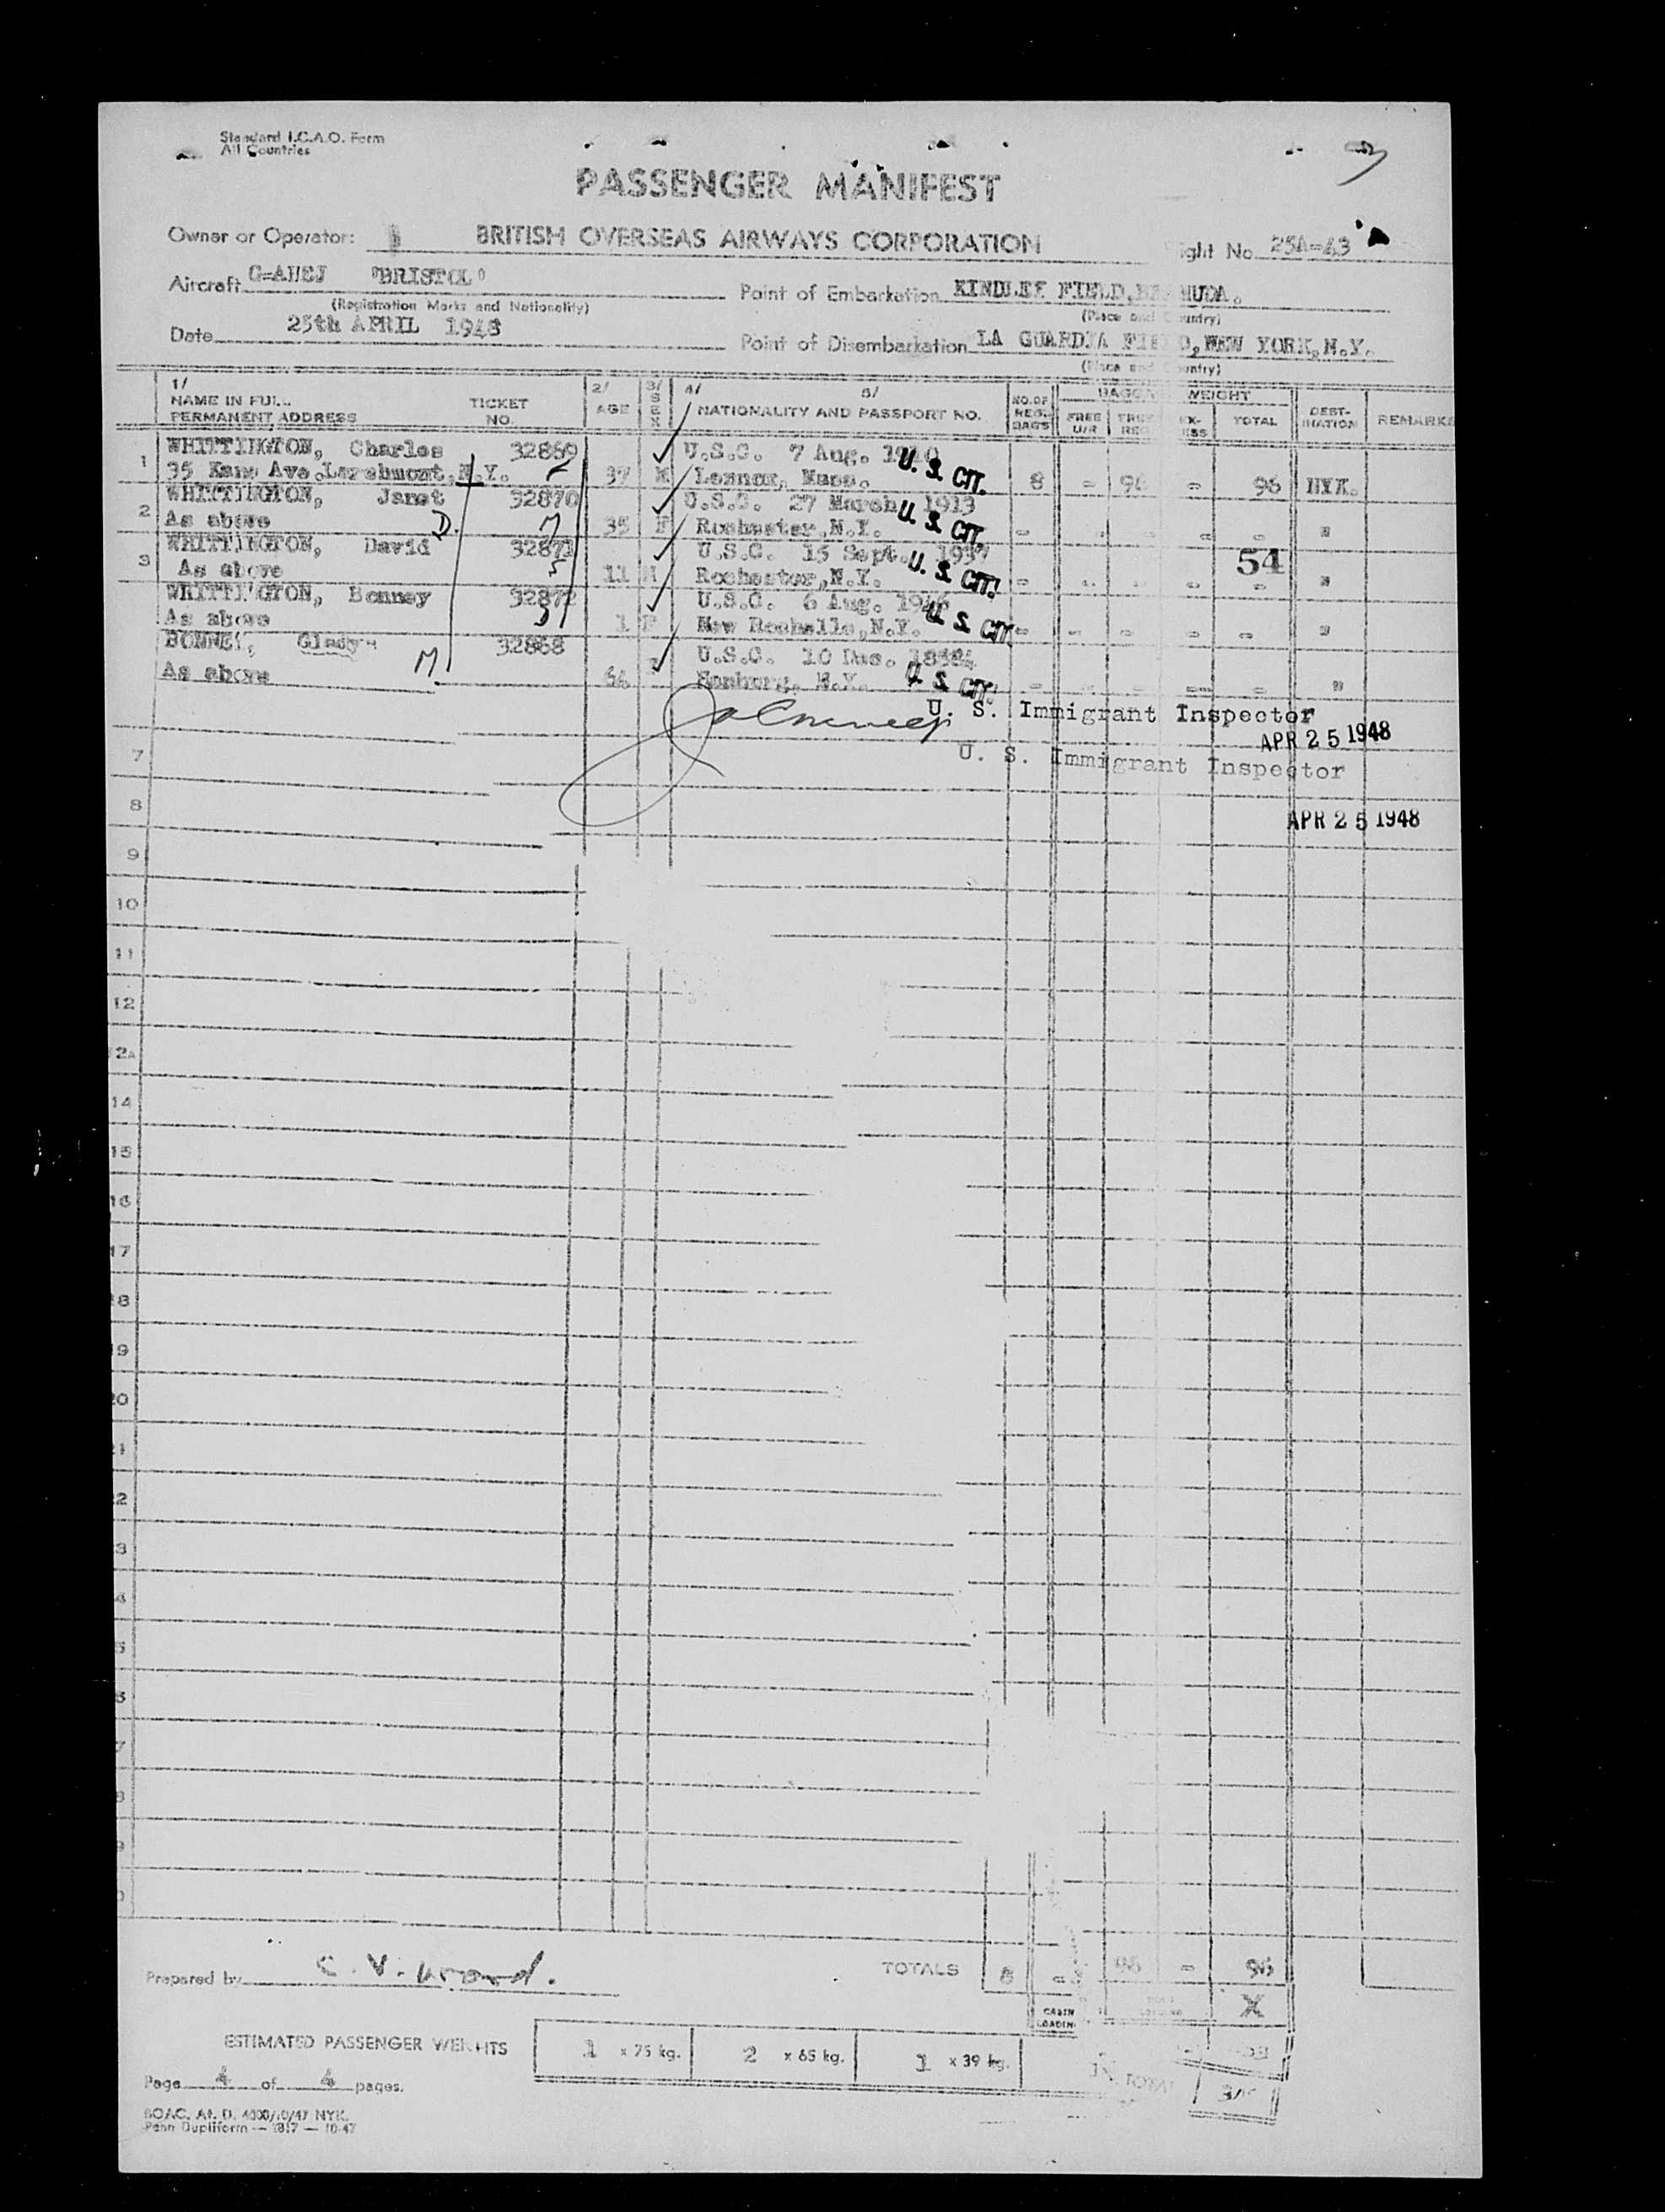 Standard I.C.A.O. Form
All Countries
PASSENGER MANIFEST
Owner or Operator: BRITISH OVERSEAS AIRWAYS CORPORATION
ight No. 25A-43
Aircraft G-AHEJ "BRISTOL"
(Registration Marks and Nationality)
Point of Embarkation KINDLEY FIELD, BE MUDA.
(Place and Country)
Date 25th APRIL 1948
Point of Disembarkation LA GUARDIA FIE D, NEW YORK, N.Y.
(Place and Country)
1/ NAME IN FULL PERMANENT ADDRESS TICKET NO. 2/ AGE 3/ SEX 4/ 5/ NATIONALITY AND PASSPORT NO. NO. OF REG. BAGS BAGGA WEIGHT FREE U/R FREE REG EX- ESS TOTAL DEST- INATION REMARKS
1 WHITTINGTON, Charles 32869 U.S.C. 7 Aug.
35 Ave. Larchmont, N.Y. 37 M Lennox, Mass. U. S. CIT. 8 - 96 - 96 NYK.
2 WHITTINGTON, Janet 32870 U.S.C. 27 March 1913
As above D. 35 F Rochester, N.Y. U. S. CIT. - - - - "
3 WHITTINGTON, David 32871 U.S.C. 15 Sept. 1937
As above 11 M Rochester, N.Y. U. S. CIT. - - - - 54 "
WHITTINGTON, Bonney 32872 U.S.C. 6 Aug. 1946
As above 1 F New Rochelle, N.Y. U. S. CIT. - - - - - "
BONNE, Gladys 32868 U.S.C. 10 Dec.
As above M 64 F N.Y. U. S. CIT. - - - - - "
U. S. Immigrant Inspector
APR 25 1948
7 U. S. Immigrant Inspector
8 APR 25 1948
9
10
11
12
2A
14
15
16
17
18
19
20
21
2
3
4
5
6
7
8
9
0
Prepared by C. V. Ward.
TOTALS 8 - 96 - 96
CABIN LOADIN X
ESTIMATED PASSENGER WEIGHTS 1 x 75 kg. 2 x 65 kg. 1 x 39 kg.
Page 4 of 4 pages.
BOAC. At. D. 4000/10/47 NYK.
Penn Dupliform — 1817 — 10-47